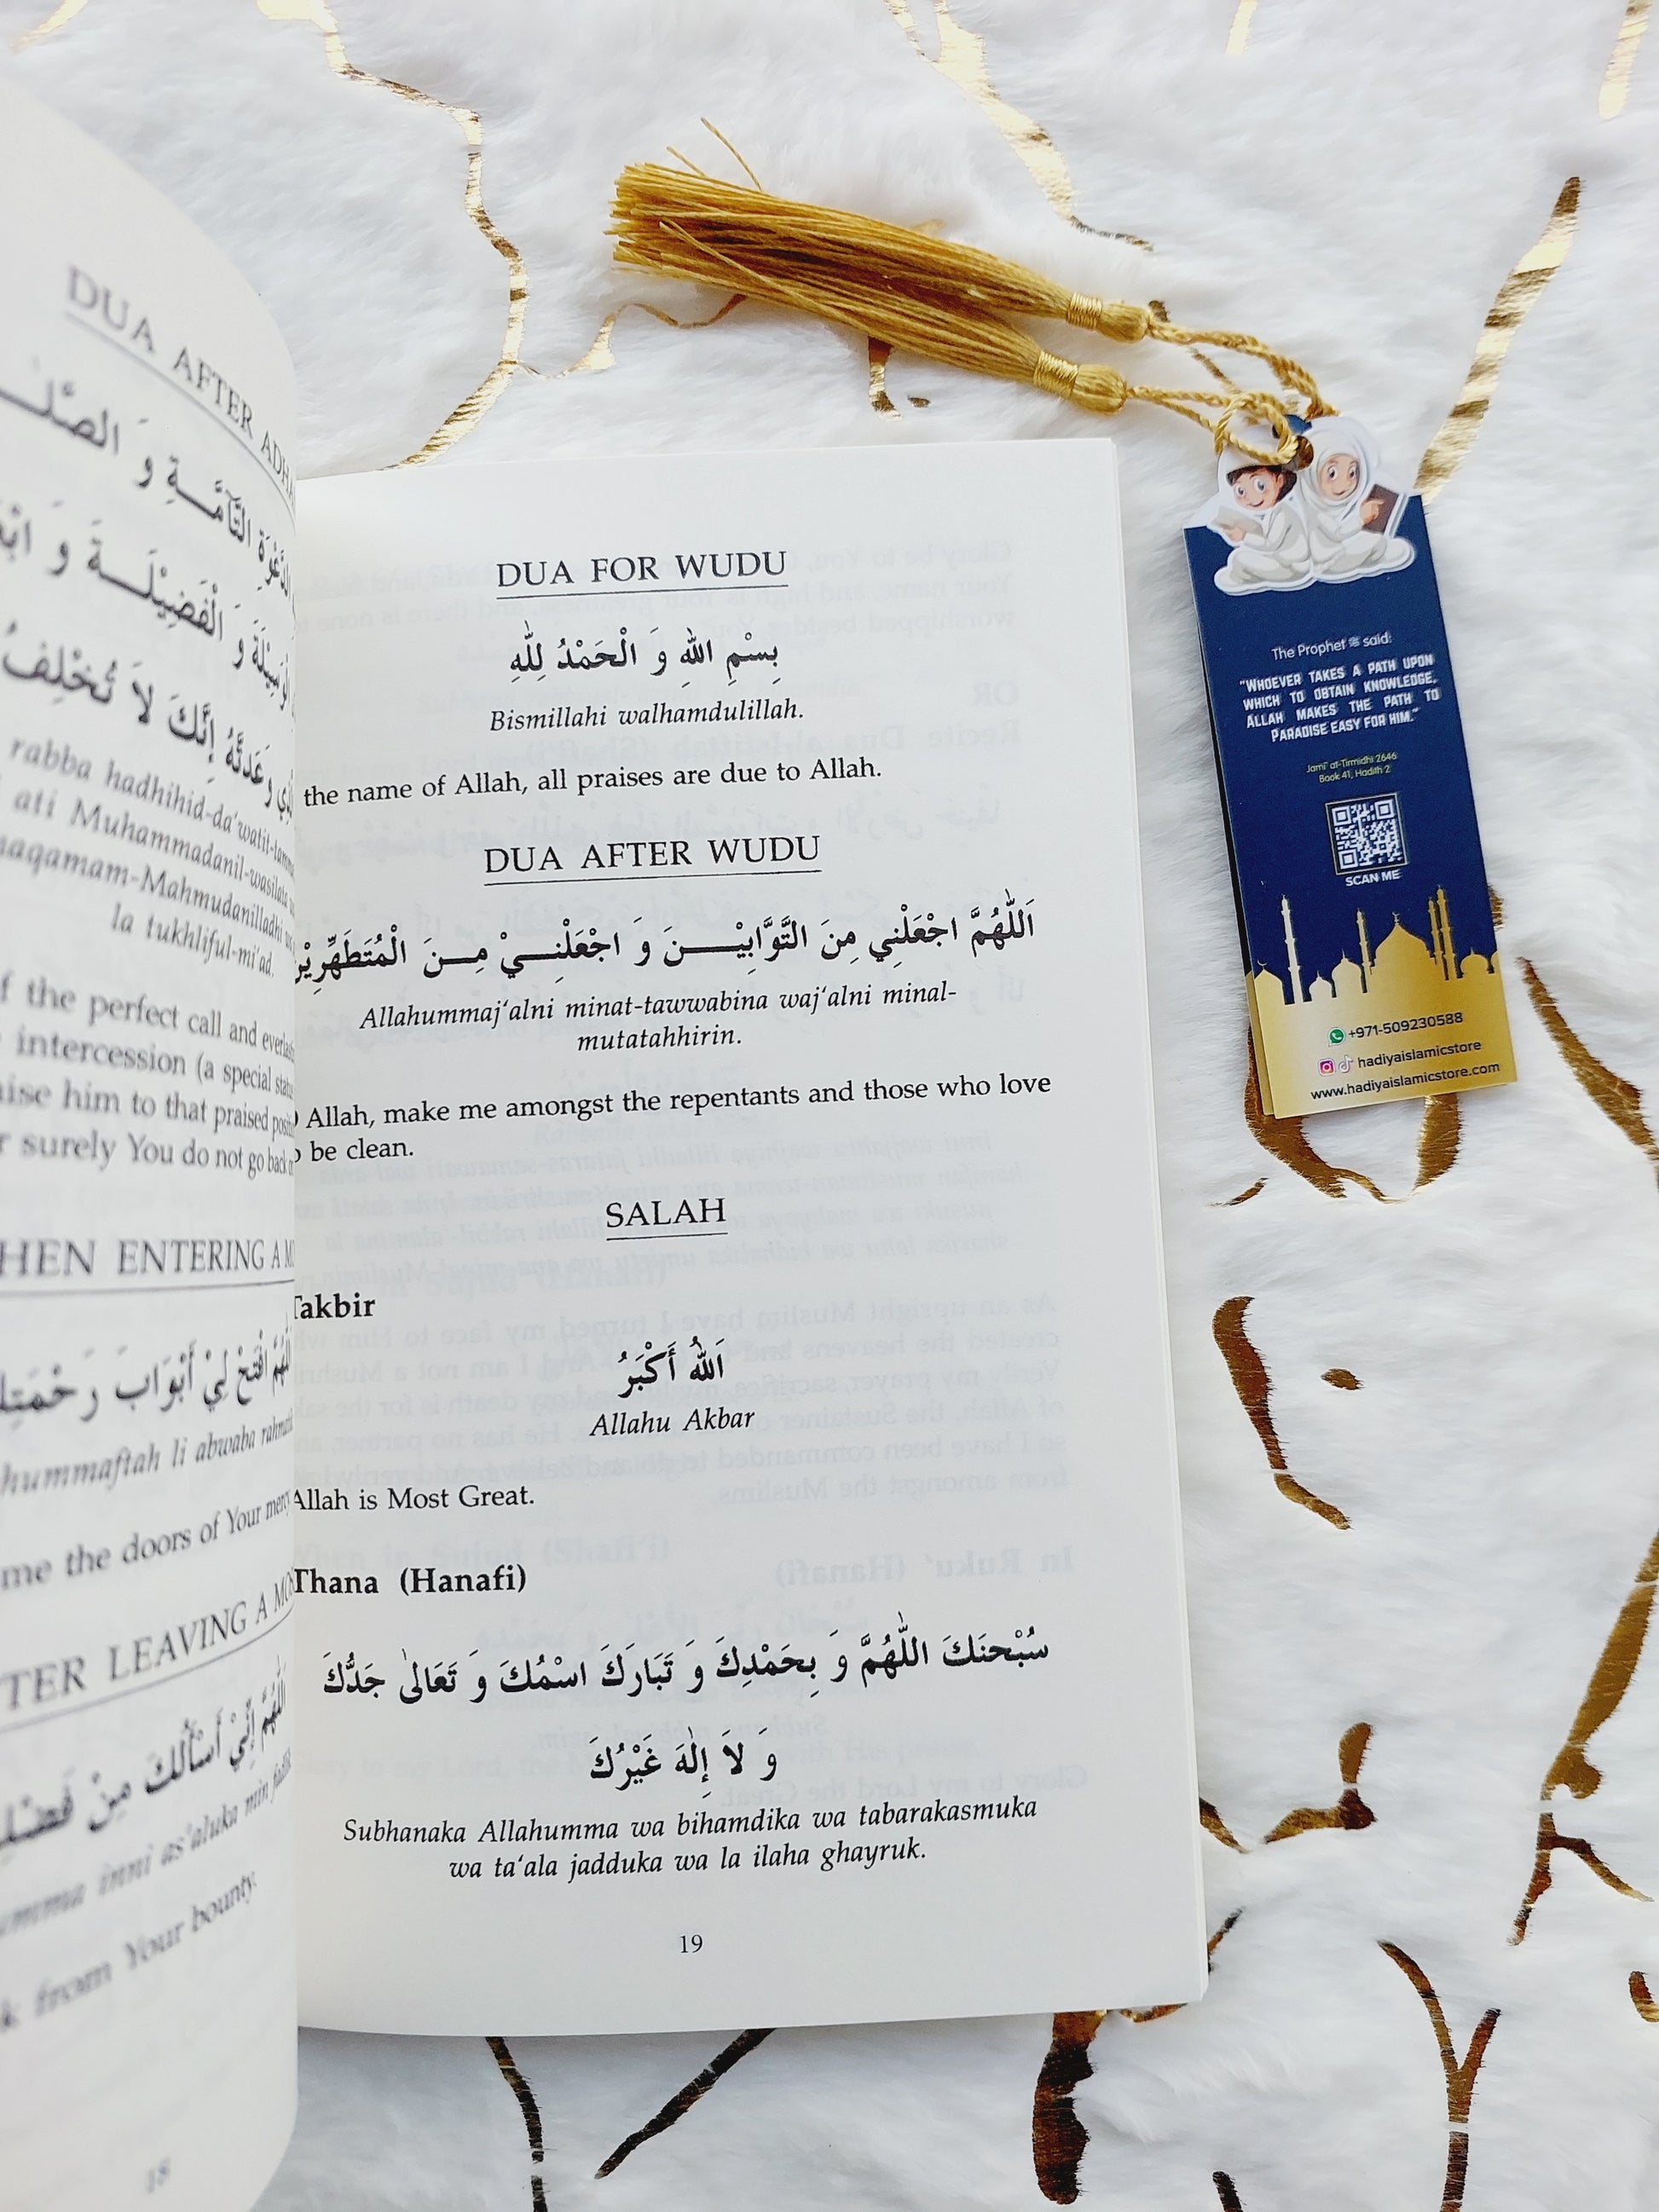 DUA AFTER
و الصلـ
التَّآمَّـــةِ
الْفَضِيْلَـــةَ وَ
وَعَدتَّهُ إِنَّكَ لَا تُخْلِفُ
rabba hadhihid-da‘watit-tamm
ati Muhammadanil-wasilata
maqamam-Mahmudanilladhi
la tukhliful-mi‘ad.
f the perfect call and everlas
intercession (a special statu
aise him to that praised positi
r surely You do not go back o
HEN ENTERING A M
افْتَحْ لِيْ أَبْوَابَ رَحْمَتِكَ
hummaftah li abwaba rahmati
me the doors of Your mercy
TER LEAVING A MO
إِنِّيْ أَسْأَلُكَ مِنْ فَضْلِـ
umma inni as’aluka min fadli
k from Your bounty.
18
DUA FOR WUDU
بِسْمِ اللهِ وَ الْحَمْدُ لِلّٰهِ
Bismillahi walhamdulillah.
the name of Allah, all praises are due to Allah.
DUA AFTER WUDU
اَللّٰهُمَّ اجْعَلْنِي مِنَ التَّوَّابِيْـــــنَ وَ اجْعَلْنِـــيْ مِـــنَ الْمُتَطَهِّرِيْن
Allahummaj‘alni minat-tawwabina waj‘alni minal-
mutatahhirin.
Allah, make me amongst the repentants and those who love
be clean.
SALAH
Takbir
اَللهُ أَكْبَرُ
Allahu Akbar
Allah is Most Great.
Thana (Hanafi)
سُبْحٰنَكَ اللّٰهُمَّ وَ بِحَمْدِكَ وَ تَبَارَكَ اسْمُكَ وَ تَعَالٰى جَدُّكَ
وَ لاَ إِلٰهَ غَيْرُكَ
Subhanaka Allahumma wa bihamdika wa tabarakasmuka
wa ta‘ala jadduka wa la ilaha ghayruk.
19
The Prophet ﷺ said:
"WHOEVER TAKES A PATH UPON
WHICH TO OBTAIN KNOWLEDGE,
ALLAH MAKES THE PATH TO
PARADISE EASY FOR HIM."
Jami' at-Tirmidhi 2646
Book 41, Hadith 2
SCAN ME
+971-509230588
hadiyaislamicstore
www.hadiyaislamicstore.com